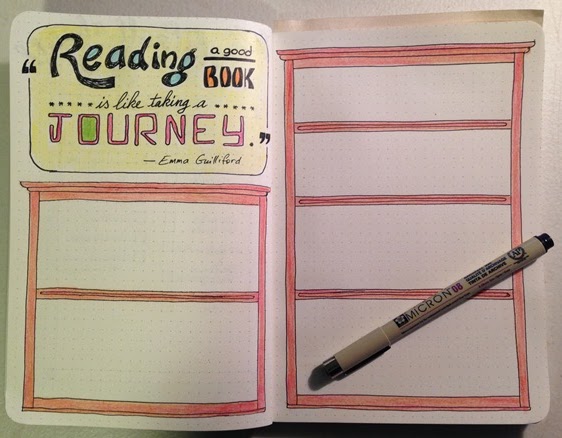 “ Reading a good
BOOK
is like taking a
JOURNEY. ”
— Emma Guilliford
MICRON 08